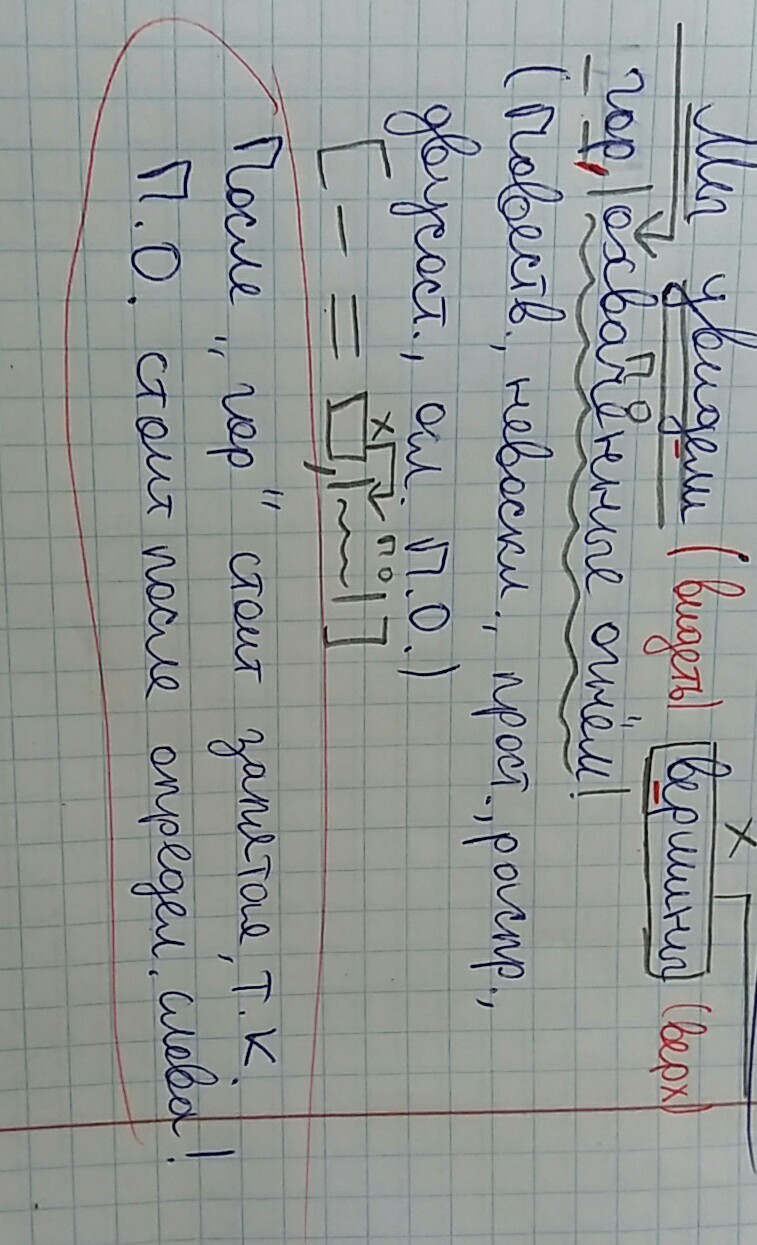 Мы увидели (видеть) вершины (верх)
гор, |охваченные огнём|
п о
(Повеств., невоскл., прост., распр.,
двусост., осл. П.О.)
х п о
[ - = □, |~~~| ]
После "гор" стоит запятая, т.к.
П.О. стоит после определ. слова!